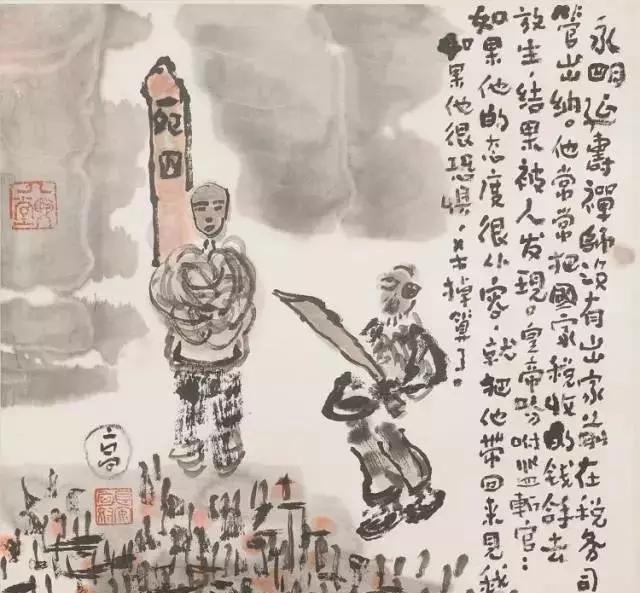 永明延壽禪師沒有出家前在税务司
管出纳。他常常把國家税收的钱拿去
放生，结果被人发现。皇帝吩咐监斬官：
如果他的态度很从容，就把他带回来见我
如果他很恐惧，ㄨ才掉算了。
死囚